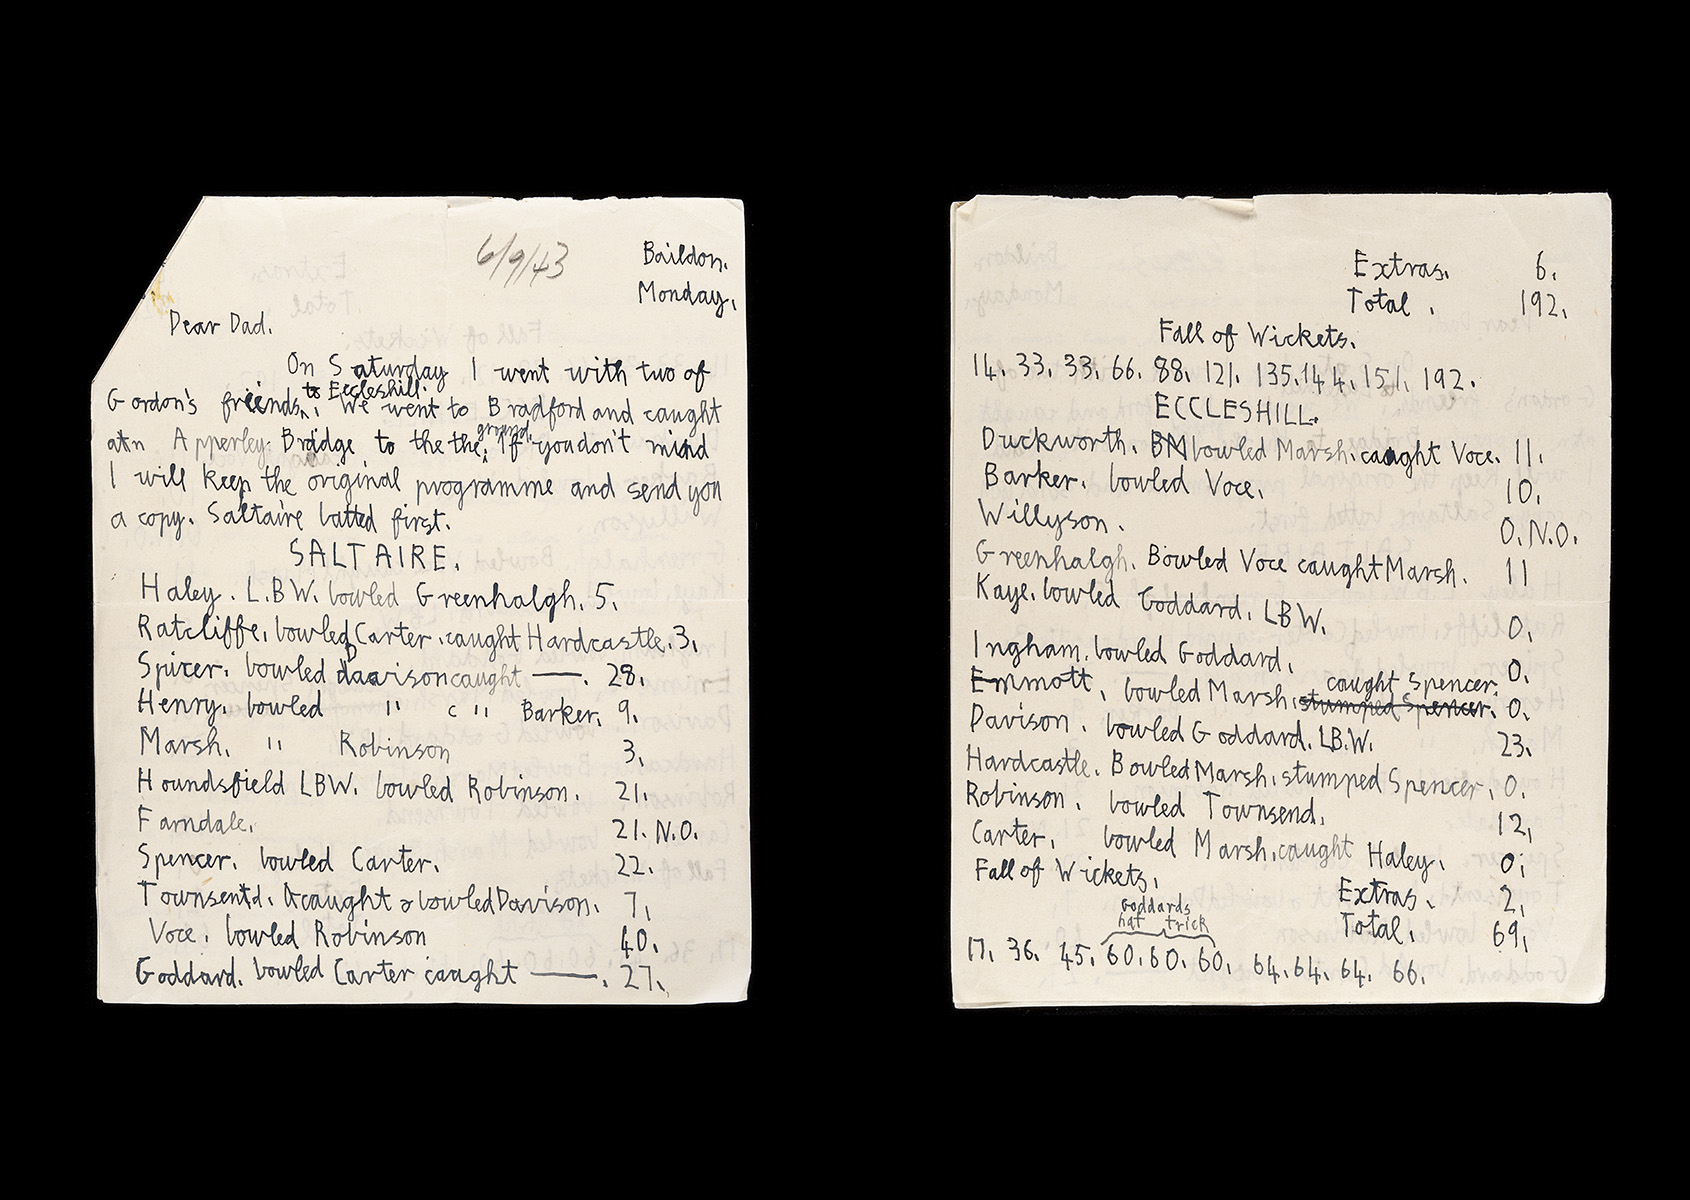 6/9/43
Baildon.
Monday.
Dear Dad.
On Saturday I went with two of
to Eccleshill.
Gordon's friends. We went to Bradford and caught
an Apperley Bridge to the the ground. If you don't mind
I will keep the original programme and send you
a copy. Saltaire batted first.
SALTAIRE.
Haley. L.B.W. bowled Greenhalgh. 5.
Ratcliffe, bowled Carter. caught Hardcastle. 3.
Spicer. bowled Davison caught —. 28.
Henry. bowled " c " Barker. 9.
Marsh. " Robinson 3.
Houndsfield LBW. bowled Robinson. 21.
Farndale. 21. N.O.
Spencer. bowled Carter. 22.
Townsend. caught & bowled Davison. 7.
Voce. bowled Robinson 40.
Goddard. bowled Carter caught —. 27.
Extras. 6.
Total. 192.
Fall of Wickets.
14. 33. 33. 66. 88. 121. 135. 144. 151. 192.
ECCLESHILL.
Duckworth. bowled Marsh. caught Voce. 11.
Barker. bowled Voce. 10.
Willyson. 0. N.O.
Greenhalgh. Bowled Voce caught Marsh. 11
Kaye. bowled Goddard. LBW. 0.
Ingham. bowled Goddard. 0.
caught Spencer.
Emmott. bowled Marsh. stumped Spencer. 0.
Davison. bowled Goddard. LB.W. 23.
Hardcastle. Bowled Marsh. stumped Spencer. 0.
Robinson. bowled Townsend. 12.
Carter. bowled Marsh. caught Haley. 0.
Fall of Wickets. Extras. 2.
Goddards
hat trick
Total. 69.
17. 36. 45. 60. 60. 60. 64. 64. 64. 66.